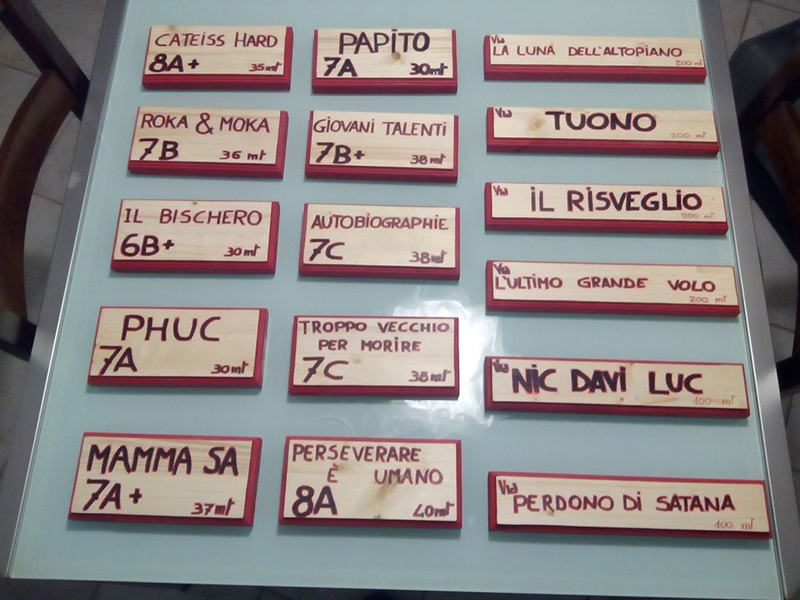 CATEISS HARD
8A+ 35mt
ROKA & MOKA
7B 36 mt
IL BISCHERO
6B+ 30mt
PHUC
7A 30mt
MAMMA SA
7A+ 37mt
PAPITO
7A 30mt
GIOVANI TALENTI
7B+ 38mt
AUTOBIOGRAPHIE
7C 38mt
TROPPO VECCHIO
PER MORIRE
7C 38mt
PERSEVERARE
È UMANO
8A 40mt
Via
LA LUNA DELL'ALTOPIANO
200 mt
Via TUONO
200 mt
Via IL RISVEGLIO
200 mt
Via
L'ULTIMO GRANDE VOLO
200 mt
Via
NIC DAVI LUC
400 mt
Via
PERDONO DI SATANA
400 mt